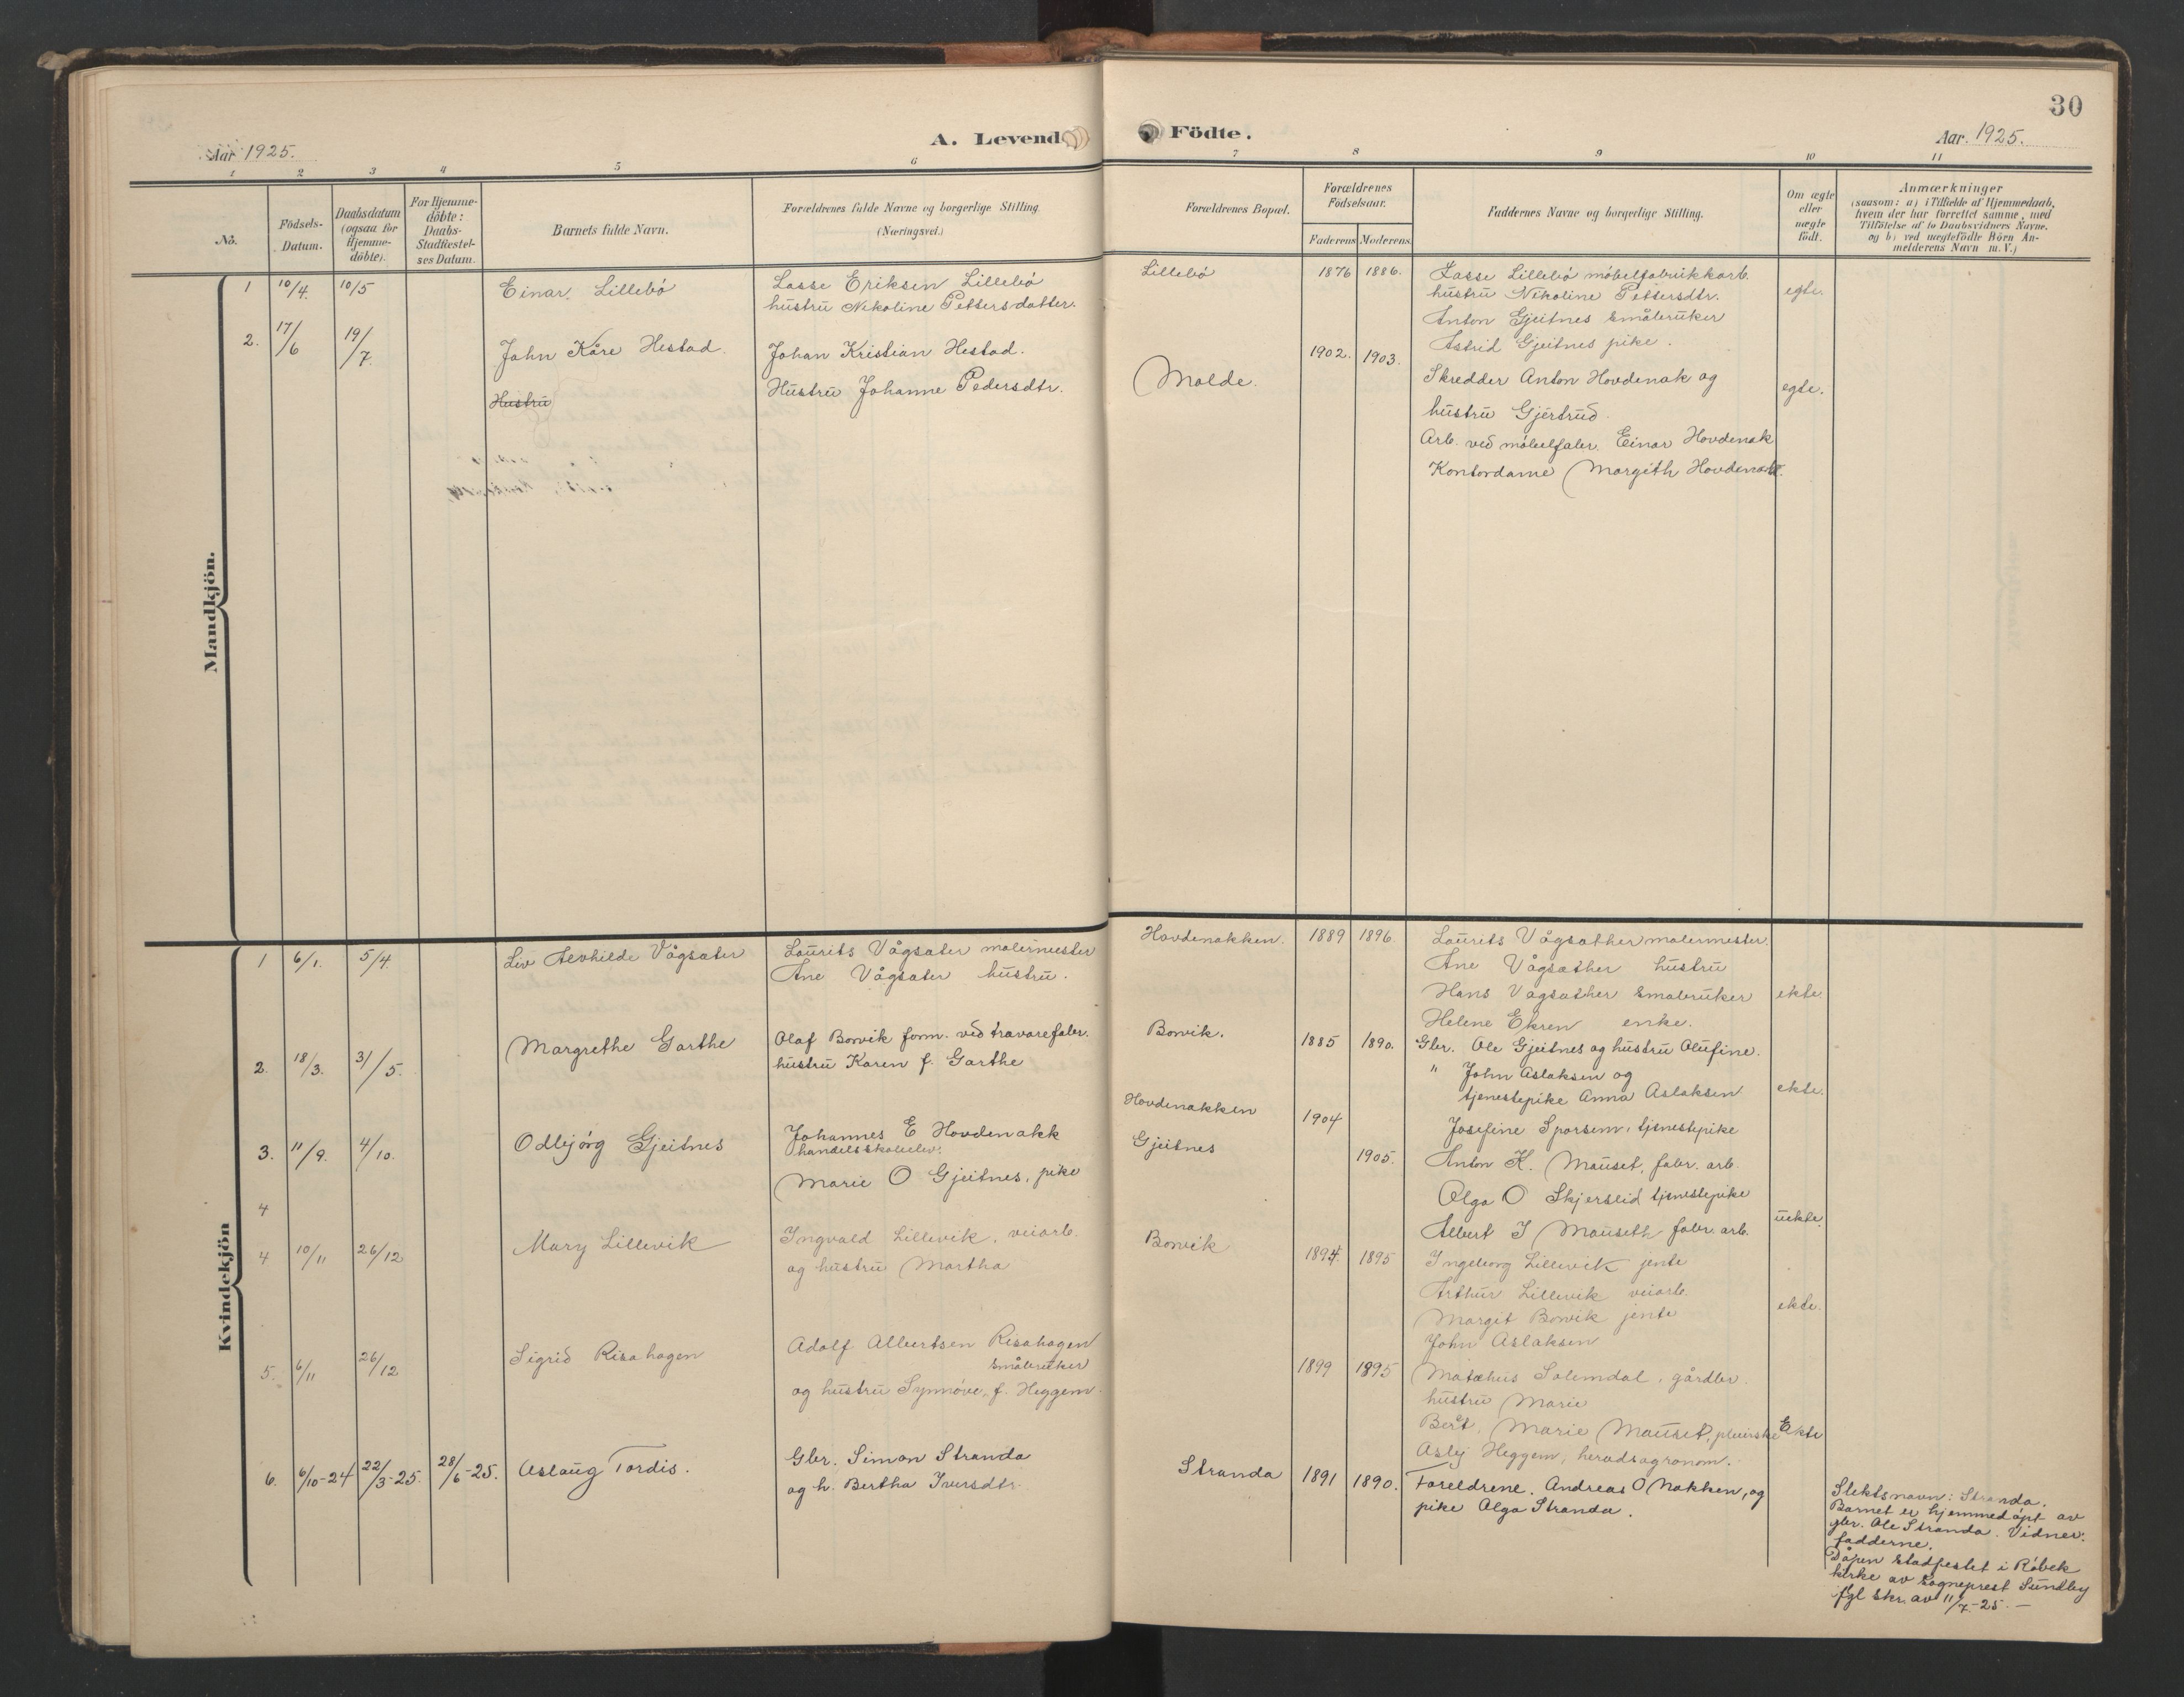 30
Aar 1925.
A. Levende
Födte.
Aar. 1925.
1 2 3 4 5 6 7 8 9 10 11
No.
Födsels-
Datum.
Daabsdatum
(ogsaa for
Hjemme-
döbte).
For Hjemme-
döbte:
Daabs-
Stadfæstel-
ses Datum.
Barnets fulde Navn.
Forældrenes fulde Navne og borgerlige Stilling.
(Næringsvei.)
Forældrenes Bopæl.
Forældrenes
Födselsaar.
Faderens Moderens
Faddernes Navne og borgerlige Stilling.
Om ægte
eller
uægte
födt.
Anmærkninger
(saasom: a) i Tilfælde af Hjemmedaab,
hvem der har forrettet samme, med
Tilföielse af to Daabsvidners Navne.
og b) ved uægtefödte Börn An-
melderens Navn m. V.)
Mandkjön.
1 10/4. 10/5 Einar. Lillebö
Lasse Eriksen Lillebö
hustru Nekoline Pettersdatter.
Lillebö 1876 1886.
Lasse Lillebö möbelfabrikkarb.
hustru Nikoline Pettersdtr.
Anton Gjeitnes småbruker
Astrid Gjeitnes pike.
egte.
2. 17/6 19/7. John Kåre Hestad.
Hustru
Johan Kristian Hestad.
Hustru Johanne Pedersdtr.
Molde. 1902. 1903.
Skredder Anton Hovdenak og
hustru Gjertrud.
Arb. ved möbelfabr. Einar Hovdenak
Kontordame Margith Hovdenak.
egte.
Kvindekjön
1 6/1. 5/4. Liv Alvhilde Vågsæter
Lourits Vågsæter malermester
Ane Vågsæter hustru.
Hovdenakken. 1889 1896.
Lourits Vågsæther malermester.
Ane Vågsæther hustru
Hans Vagsæther småbruker
Helene Ekren enke.
ekte.
2. 18/3. 31/5. Margrethe Garthe
Olaf Bovik form. ved travarefabr.
hustru Karen f. Garthe
Bovik. 1885 1890.
Gbr. Ole Gjeitnes og hustru Olufine.
" John Aslaksen og
tjenestepike Anna Aslaksen
Josefine Sporsem, tjenestepike
ekte.
3. 11/9. 4/10. Odbjörg Gjeitnes
Johannes E Hovdenakk
handelsskoleelev.
Marie O Gjeitnes, pike
Hovdenakken 1904
Gjeitnes 1905.
Anton K. Mauset, fabr. arb.
Olga O Skjerslid tjenestepike
Albert I Mauseth fabr. arb.
uekte.
4
4 10/11 26/12 Mary Lillevik
Ingvald Lillevik, veiarb.
og hustru Martha
Bovik 1894. 1895
Ingeborg Lillevik jente
Arthur Lillevik veiarb.
Margit Bovik jente
John Aslaksen
ekte.
5. 6/11 26/12 Sigrid Risahagen
Adolf Albertsen Risahagen
småbruker
og hustru Synnöve, f. Heggem.
1899 1895
Matæhus Solemdal, gårdbr.
hustru Marie
Bert. Marie Mauset, pleierske
Asbj Heggem, herredsagronom.
Ekte
6. 6/10-24 22/3-25. 28/6-25. Aslaug Tordis.
Gbr. Simon Stranda
og h. Bertha Iversdtr.
Stranda 1891 1890.
Foreldrene. Andreas O Nakken, og
pike Olga Stranda.
Slektsnavn: Stranda.
Barnet er hjemmedöpt av
gbr. Ole Stranda. Vidner:
fadderne.
Dåpen stadfestet i Röbek
kirke av sogneprest Sundby
ifgl skr. av 11/7-25.—